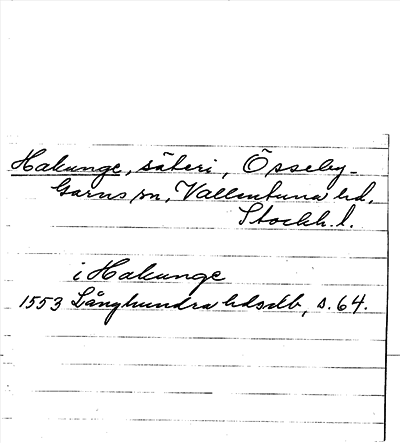 Hakunge, säteri, Össeby-
Garns sn, Vallentuna hd,
Stockh. l.
i Hakunge
1553 Långhundra hdsdb, s. 64.